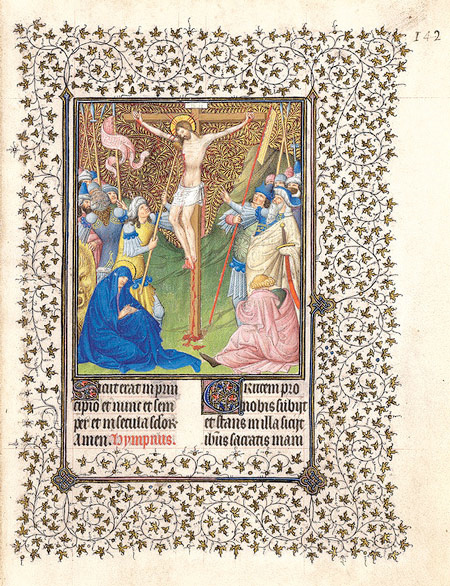 142
Sicut erat in prin
cipio et nunc et sem
per et in secula sclor
Amen. Hympnus.
Crucem pro
nobis subiit
et stans in illa sicijt
ihus sacratis mani